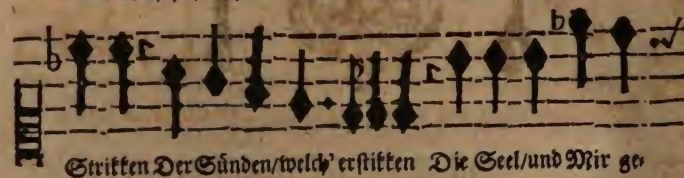 Strikken Der Sünden/welch' erstikken Die Seel/und Mir ge-